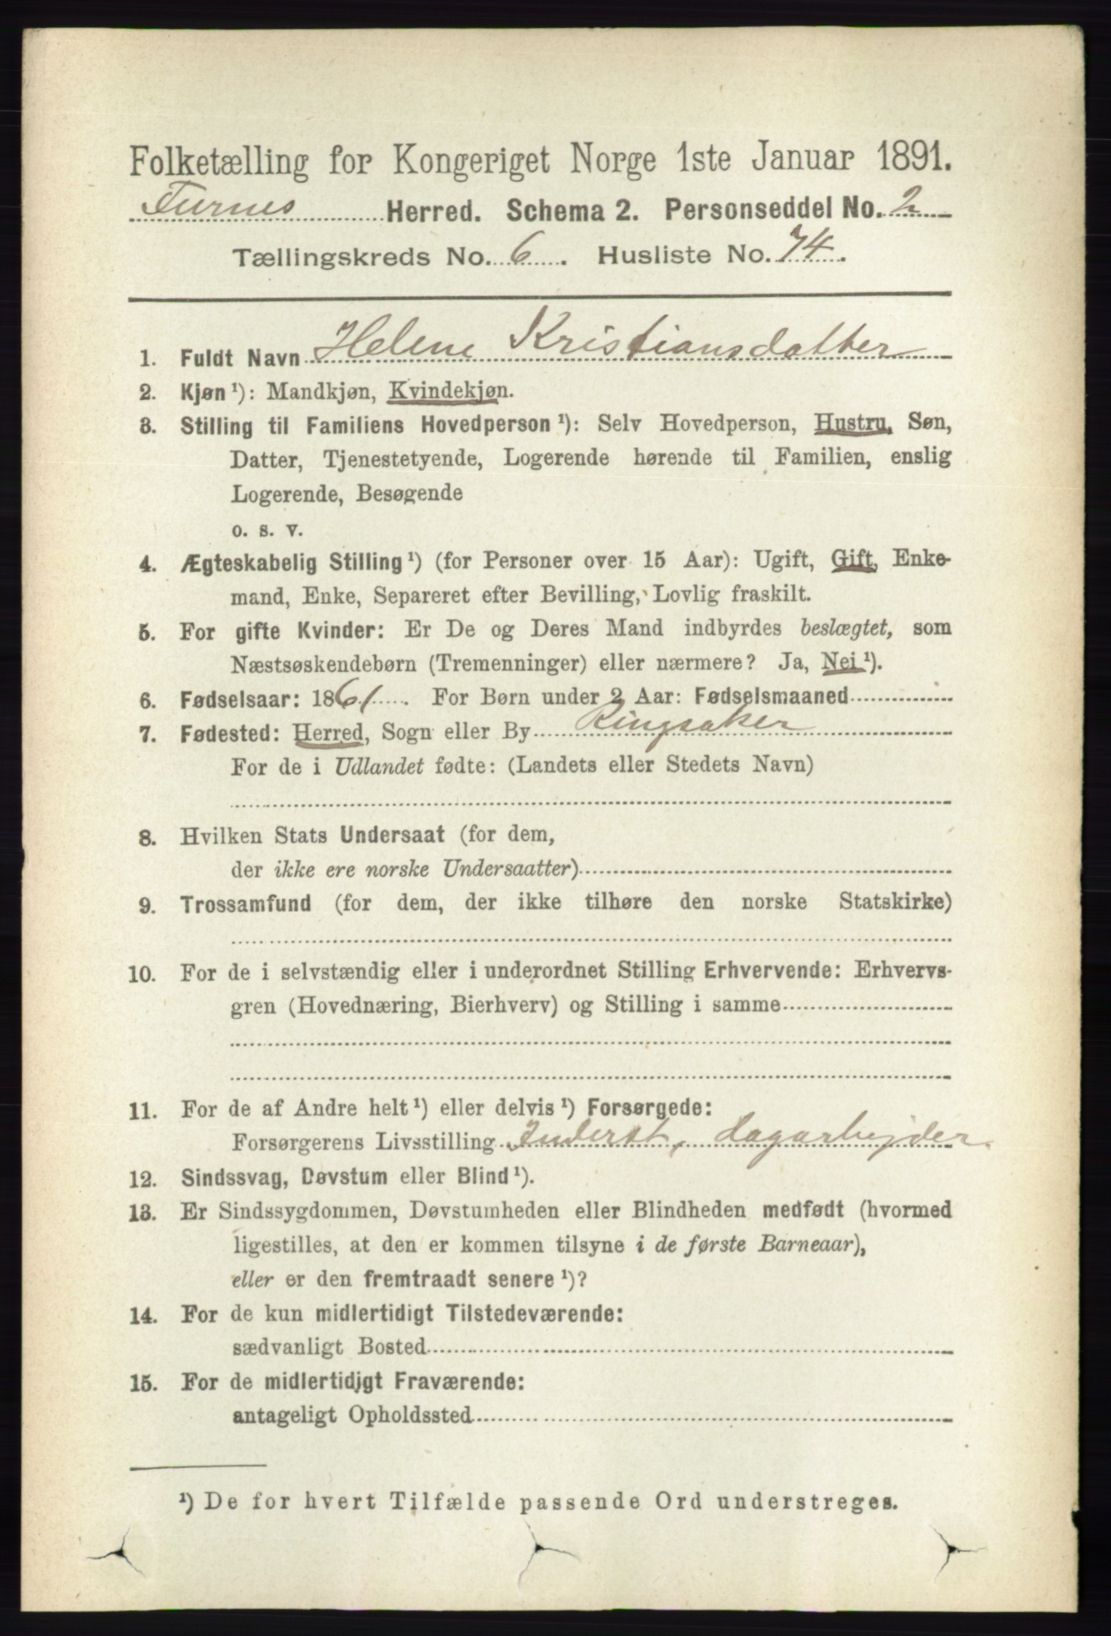 Folketælling for Kongeriget Norge 1ste Januar 1891.
Furnes Herred. Schema 2. Personseddel No. 2
Tællingskreds No. 6. Husliste No. 74.
1. Fuldt Navn Helene Kristiansdatter
2. Kjøn ¹): Mandkjøn, Kvindekjøn.
3. Stilling til Familiens Hovedperson ¹): Selv Hovedperson, Hustru, Søn,
Datter, Tjenestetyende, Logerende hørende til Familien, enslig
Logerende, Besøgende
o. s. v.
4. Ægteskabelig Stilling ¹) (for Personer over 15 Aar): Ugift, Gift, Enke-
mand, Enke, Separeret efter Bevilling, Lovlig fraskilt.
5. For gifte Kvinder: Er De og Deres Mand indbyrdes beslægtet, som
Næstsøskendebørn (Tremenninger) eller nærmere? Ja, Nei ¹).
6. Fødselsaar: 1861. For Børn under 2 Aar: Fødselsmaaned
7. Fødested: Herred, Sogn eller By Ringsaker
For de i Udlandet fødte: (Landets eller Stedets Navn)
8. Hvilken Stats Undersaat (for dem,
der ikke ere norske Undersaatter)
9. Trossamfund (for dem, der ikke tilhøre den norske Statskirke)
10. For de i selvstændig eller i underordnet Stilling Erhvervende: Erhvervs-
gren (Hovednæring, Bierhverv) og Stilling i samme
11. For de af Andre helt ¹) eller delvis ¹) Forsørgede:
Forsørgerens Livsstilling Inderst, dagarbejder.
12. Sindssvag, Døvstum eller Blind ¹).
13. Er Sindssygdommen, Døvstumheden eller Blindheden medfødt (hvormed
ligestilles, at den er kommen tilsyne i de første Barneaar),
eller er den fremtraadt senere ¹)?
14. For de kun midlertidigt Tilstedeværende:
sædvanligt Bosted
15. For de midlertidigt Fraværende:
antageligt Opholdssted
¹) De for hvert Tilfælde passende Ord understreges.